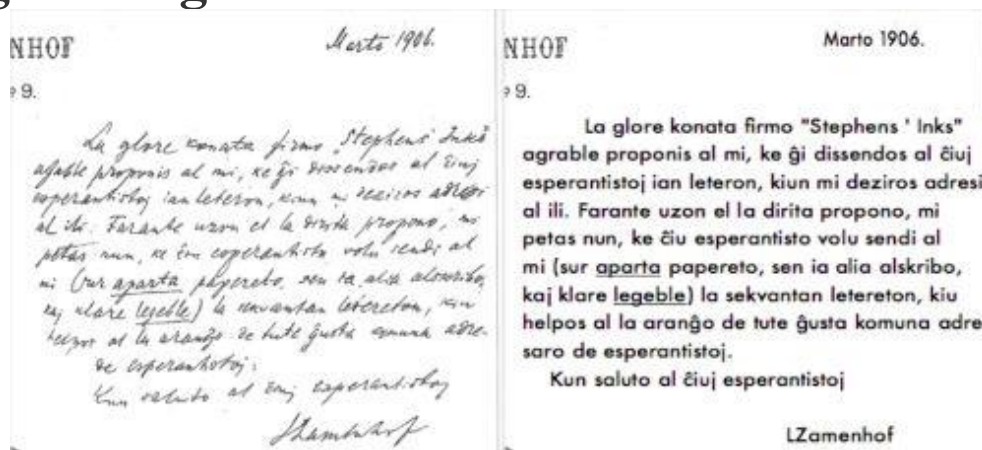 NHOF
Marto 1906.
9.
La glore konata firmo "Stephens' Inks
agrable proponis al mi, ke ĝi dissendos al ĉiuj
esperantistoj ian leteron, kiun mi deziros adresi
al ili. Farante uzon el la dirita propono, mi
petas nun, ke ĉiu esperantisto volu sendi al
mi (sur aparta papereto, sen ia alia alskribo,
kaj klare legeble) la sekvantan letereton, kiu
helpos al la aranĝo de tute ĝusta komuna adre-
de esperantistoj.
Kun saluto al ĉiuj esperantistoj
LZamenhof
NHOF
Marto 1906.
9.
La glore konata firmo "Stephens ' Inks"
agrable proponis al mi, ke ĝi dissendos al ĉiuj
esperantistoj ian leteron, kiun mi deziros adresi
al ili. Farante uzon el la dirita propono, mi
petas nun, ke ĉiu esperantisto volu sendi al
mi (sur aparta papereto, sen ia alia alskribo,
kaj klare legeble) la sekvantan letereton, kiu
helpos al la aranĝo de tute ĝusta komuna adre
saro de esperantistoj.
Kun saluto al ĉiuj esperantistoj
LZamenhof